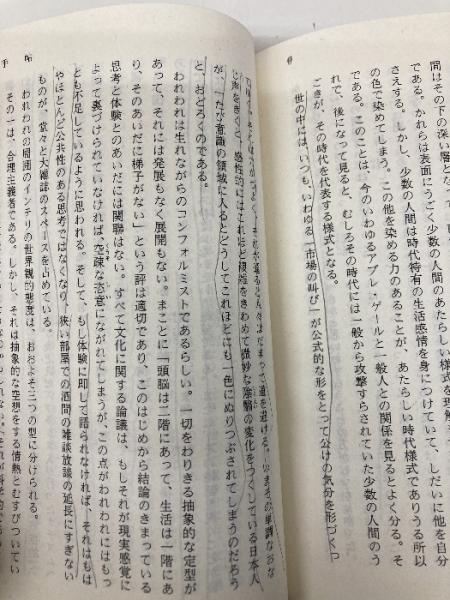 間はその下の深い層で
である。かれらは表面にうごく少数の人間のあたらしい様式を理解
さえする。しかし、少数の人間は時代特有の生活感情を身につけていて、しだいに他を自分
の色で染めてしまう。この他を染める力のあることが、あたらしい時代様式でありうる所以
である。このことは、今のいわゆるアプレ・ゲールと一般人との関係を見るとよく分る。そ
れで、後になって見ると、むしろその時代には一般から攻撃すらされていた少数の人間のう
ごきが、その時代を代表する様式となる。
世の中には、いつも、いわゆる「市場の叫び」が公式的な形をとって公けの気分を形づくっ
だまって道を避ける。いまその単調なおな
じ声をきくと、感性的にはこれほど複雑をきわめて微妙な陰翳の変化をつくしている日本人
が、一たび意識の領域に入るとどうしてこれほどにも一色にぬりつぶされてしまうのだろう
と、おどろくのである。
われわれは生れながらのコンフォルミストであるらしい。一切をわりきる抽象的な定型が
あって、それには発展もなく展開もない。まことに「頭脳は二階にあって、生活は一階にあ
り、そのあいだに梯子がない」という評は適切であり、このはじめから結論のきまっている
思考と体験とのあいだには関聯はない。すべて文化に関する論議は、もしそれが現実感覚に
よって裏づけられていなければ、空疎な恣意にながれてしまうが、この点がわれわれにはもっ
とも不足しているように思われる。そして、もし体験に即して語られなければ、それはもは
やほとんど公共性のある思考ではなくなり、狭い部屋での酒間の雑談放議の延長にすぎない
ものが、堂々と大雑誌のスペースを占めている。
われわれの周囲のインテリの世界観的態度は、おおよそ三つの型に分けられる。
その一は、合理主義者である。しかし、それは抽象的な空想をする情熱とむすびついてい
手帖